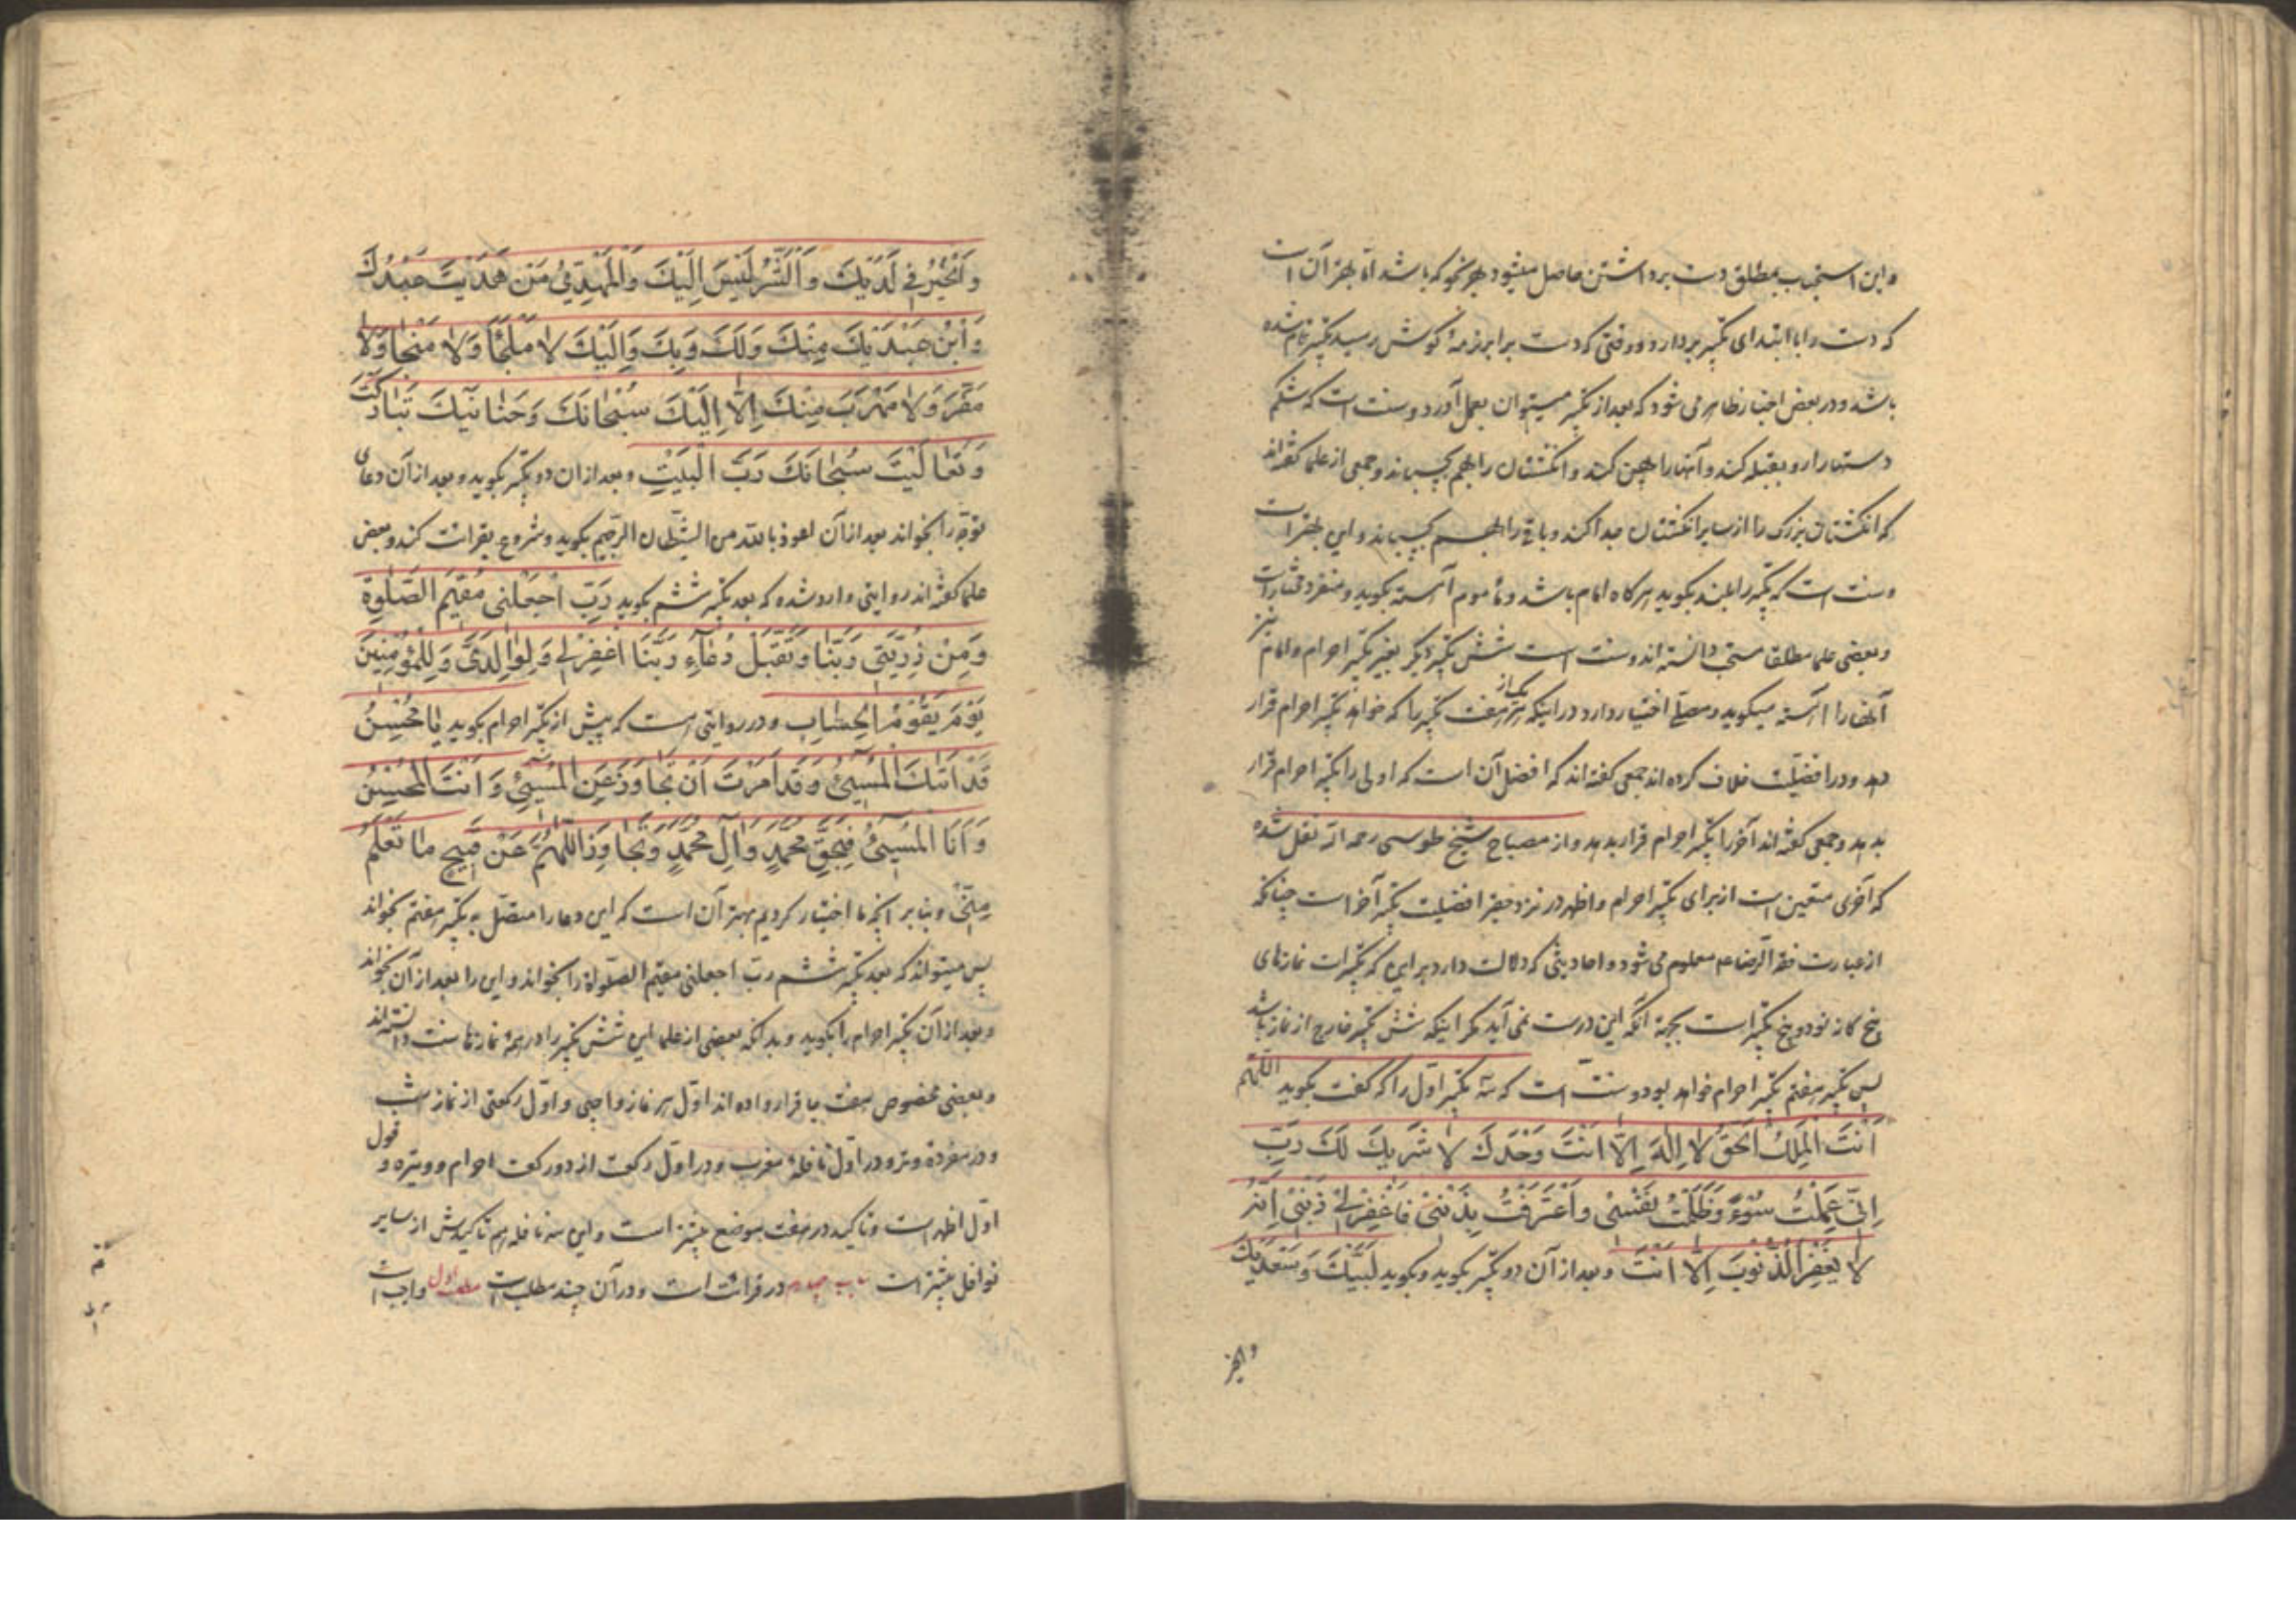 و این استحباب بمطلق دست برداشتن حاصل میشود بهر نحو که باشد اما بهتر آن است
که دست را با ابتدای تکبیر بردارد و وقتی که دست برابر نرمهٔ گوش رسید تکبیر تمام شده
باشد و در بعض اخبار ظاهر می شود که بعد از تکبیر میتوان بعمل آورد و سنت است که شکم
دستها را رو بقبله کند و آنها را پهن کند و انگشتان را بهم بچسباند و جمعی از علما گفته‌اند
که انگشتان بزرگ را از سایر انگشتان جدا کند و باقی را بهم بچسباند و این بهتر است
و سنت است که تکبیر را بلند بگوید هرگاه امام باشد و مأموم آهسته بگوید و منفرد مختار است
و بعضی علما مطلقا مستحب دانسته اند و سنت است شش تکبیر دیگر بغیر تکبیر احرام و امام نیز
آنها را آهسته میگوید و مصلّی اختیار دارد در اینکه هر یک از هفت تکبیر را که خواهد تکبیر احرام قرار
دهد و در افضلیت خلاف کرده اند جمعی گفته اند که افضل آن است که اولی را تکبیر احرام قرار
بدهد و جمعی گفته اند آخر را تکبیر احرام قرار بدهد و از مصباح شیخ طوسی رحمه الله نقل شده
که آخری متعین است از برای تکبیر احرام و اظهر در نزد حقیر افضلیت تکبیر آخر است چنانکه
از عبارت فقه الرضا ع معلوم می شود و احادیثی که دلالت دارد بر این که تکبیرات نمازهای
پنج گانه نود و پنج تکبیر است بجهة آنکه این درست نمی آید مگر اینکه شش تکبیر خارج از نماز باشد
پس تکبیر هفتم تکبیر احرام خواهد بود و سنت است که سه تکبیر اوّل را که گفت بگوید اللّهمّ
اَنْتَ الْمَلِكُ الْحَقُّ لا اِلٰهَ اِلّا اَنْتَ وَحْدَكَ لا شَرِيكَ لَكَ رَبِّ
اِنّى عَمِلْتُ سُوْءً وَظَلَمْتُ نَفْسْى وَاعْتَرَفْتُ بِذَنْبْى فَاغْفِرْلى ذَنْبْى اِنَّهُ
لا يَغْفِرُ الذُّنوُبَ اِلّا اَنْتَ و بعد از آن دو تکبیر بگوید و بگوید لَبَّيْكَ وَ سَعْدَيْكَ
والخیر
وَ الْخَيْرُ فى لَدَيْكَ وَ الْشَّرُّ لَيْسَ اِلَيْكَ وَالْمَهْدِىُّ مَنْ هَدَيْتَ عَبْدُكَ
وَ ابْنُ عَبْدَيْكَ مِنْكَ وَلَكَ وَ بِكَ وَ اِلَيْكَ لا مَلْجَأَ وَلا مَنْجا وَلا
مَفَرَّ وَلا مَهْرَبَ مِنْكَ اِلّا اِلَيْكَ سُبْحانَكَ وَ حَنانَيْكَ تَبارَكْتَ
وَ تَعالَيْتَ سُبْحانَكَ رَبَّ الْبَيْتِ و بعد از ان دو تکبیر بگوید و بعد از آن دعای
توجّه را بخواند بعد از آن اعوذ بالله من الشیطان الرجیم بگوید و شروع بقرائت کند و بعض
علما گفته اند روایتی وارد شده که بعد تکبیر ششم بگوید رَبِّ اجْعَلْنى مُقيمَ الصَّلٰوةِ
وَ مِنْ ذُرِّيَّتى رَبَّنا وَ تَقَبَّلْ دُعآءِ رَبَّنَا اغْفِرْ لى وَ لِوالِدَىَّ وَ لِلْمُؤْمِنينَ
يَوْمَ يَقُوْمُ الْحِسابِ و در روایتی است که پیش از تکبیر احرام بگوید يا مُحْسِنُ
قَدْ اَتٰيكَ الْمُسيئُ وَ قَدْ اَمَرْتَ اَنْ تَجاوَزَ عَنِ الْمُسيْئِ وَ اَنْتَ الْمُحْسِنُ
وَ اَنَا الْمُسيْئُ فَبِحَقِّ مُحَمَّدٍ وَ آلِ مُحَمَّدٍ وَ تَجاوَزْ اللّهُمَّ عَنْ قَبيحِ ما تَعْلَمُ
مِنّى و بنابر آنچه ما اختیار کردیم بهتر آن است که این دعا را متصّل به تکبیر هفتم بخواند
پس میتواند که بعد تکبیر ششم ربّ اجعلنی مقیم الصّلواة را بخواند و این را بعد از آن بخواند
و بعد از آن تکبیر احرام را بگوید و بدانکه بعضی از علما این شش تکبیر را در همهٔ نمازها سنت دانسته‌اند
و بعضی مخصوص هفت جا قرار داده اند اوّل هر نماز واجبی و اوّل رکعتی از نماز شب
و در مفردهٔ وتر و در اوّل نافلهٔ مغرب و در اوّل رکعت از دو رکعت احرام و وتیره و قول
اوّل اظهر است و تاکید در هفت موضع بیشتر است و این سه نافله هم تاکیدش از سایر
نوافل بیشتر است باب چهارم در قرائت است و در آن چند مطلب است مطلب اول واجب است